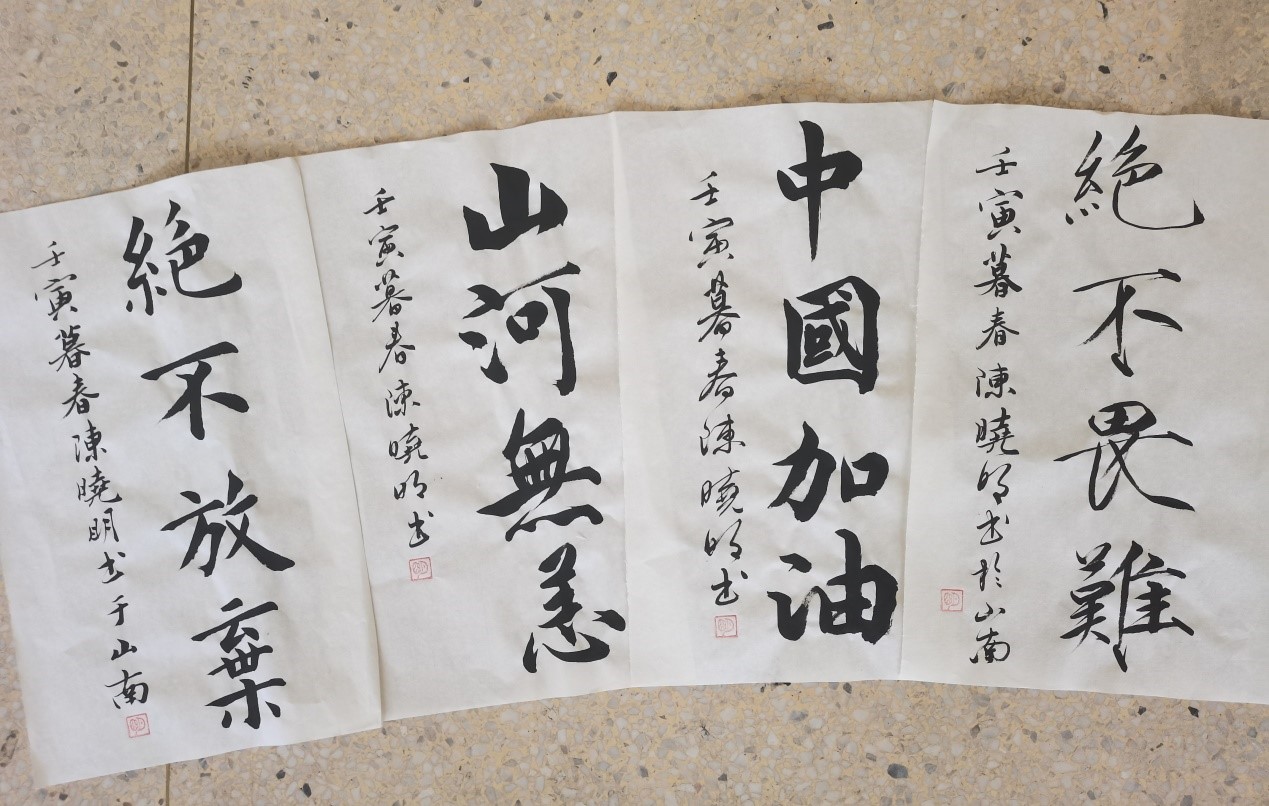 絕不畏難
壬寅暮春陳曉明书於山南
中國加油
壬寅暮春陳曉明书
山河無恙
壬寅暮春陳曉明书
絕不放棄
壬寅暮春陳曉明书于山南